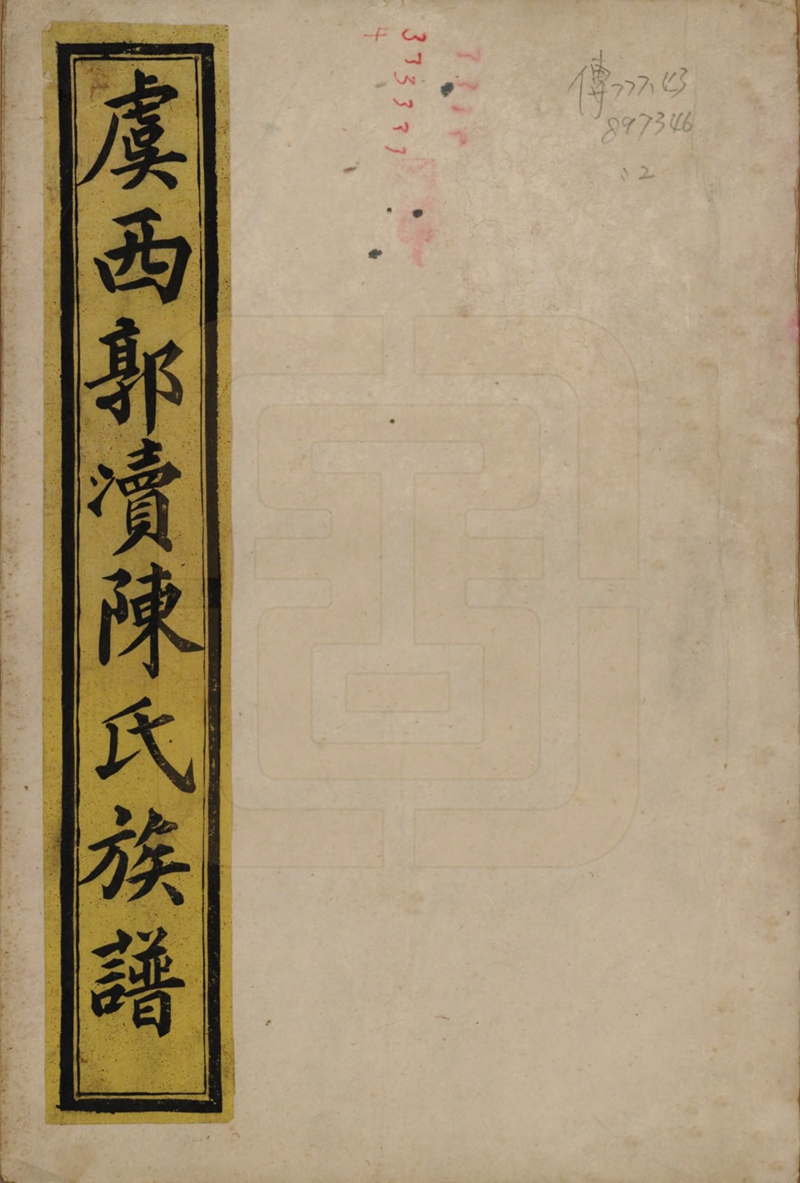 虞西郭瀆陳氏族譜
傳777.43
897346
:2